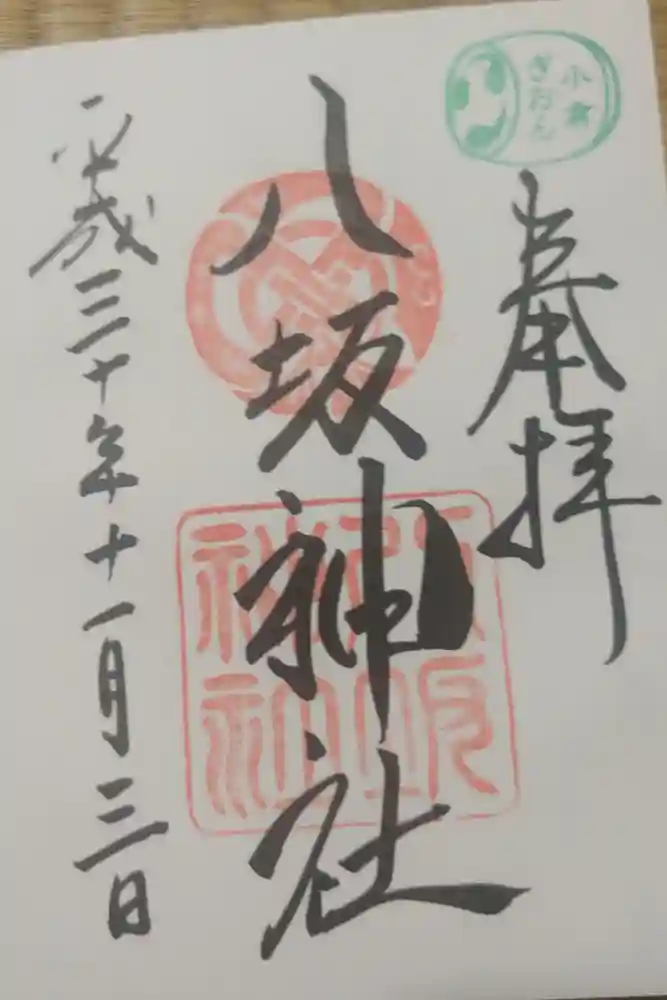 小倉
ぎおん
奉拝
八坂神社
八阪
神社
平成三十年十一月三日